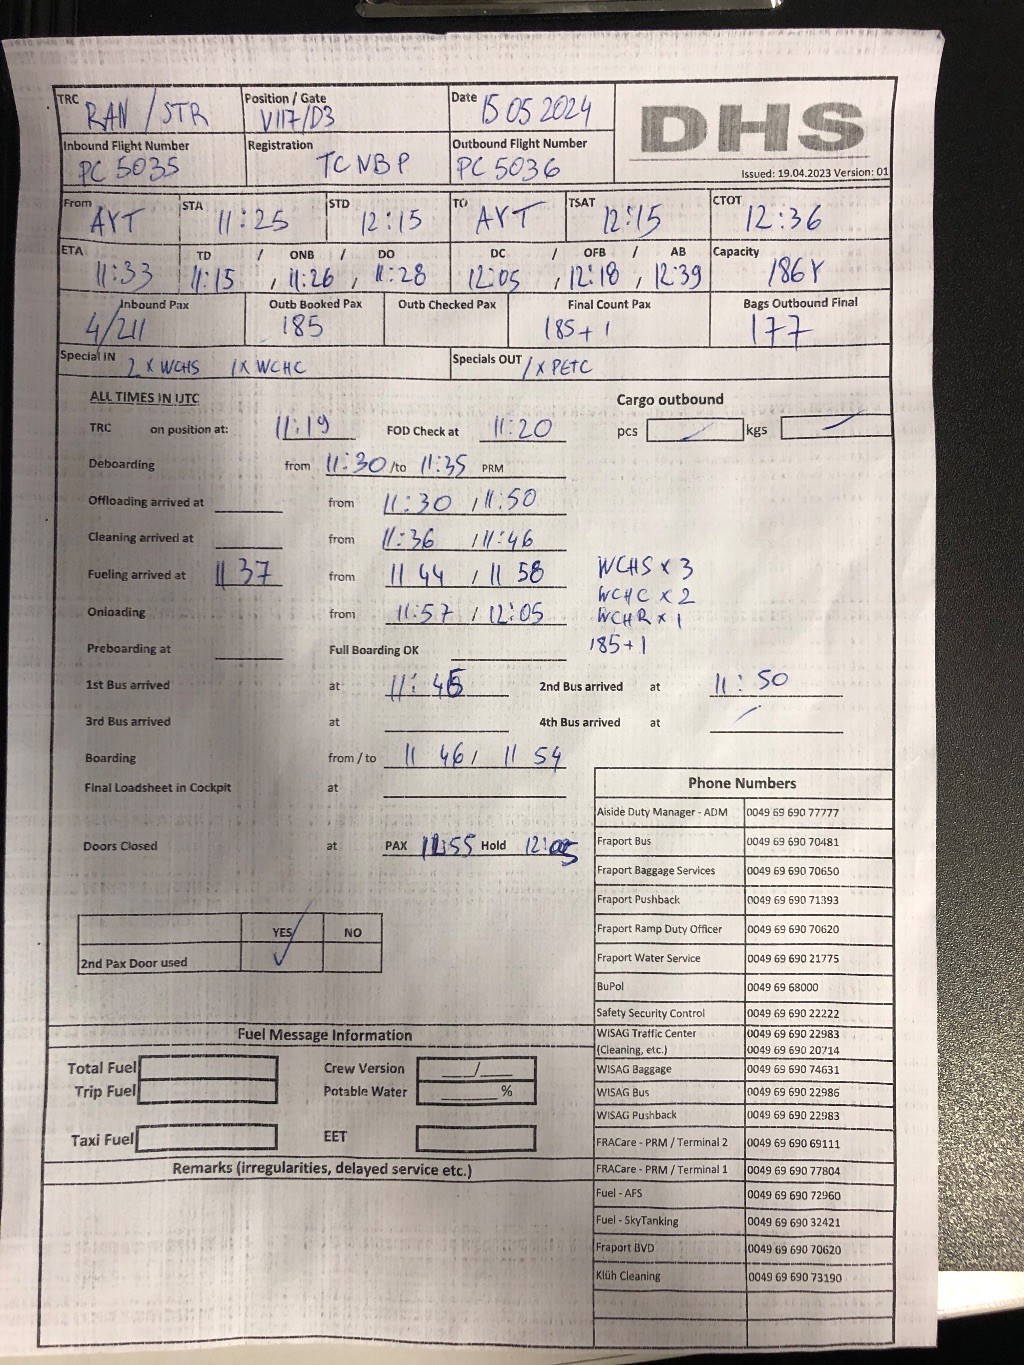 TRC RAN / STR Position / Gate V117/D3 Date 15 05 2024 DHS
Inbound Flight Number PC 5035 Registration TC NBP Outbound Flight Number PC 5036 Issued: 19.04.2023 Version: 01
From AYT STA 11:25 STD 12:15 TO AYT TSAT 12:15 CTOT 12:36
ETA 11:33 TD / ONB / DO 11:15 , 11:26 , 11:28 DC / OFB / AB 12:05 , 12:18 , 12:39 Capacity 186Y
Inbound Pax 4/211 Outb Booked Pax 185 Outb Checked Pax Final Count Pax 185+1 Bags Outbound Final 177
Special IN 2 X WCHS 1X WCHC Specials OUT 1X PETC
ALL TIMES IN UTC Cargo outbound
TRC on position at: 11:19 FOD Check at 11:20 pcs kgs
Deboarding from 11:30 /to 11:35 PRM
Offloading arrived at from 11:30 / 11:50
Cleaning arrived at from 11:36 / 11:46
Fueling arrived at 11 37 from 11 44 / 11 58 WCHS X 3
WCHC X 2
Onloading from 11:57 / 12:05 WCHR X 1
Preboarding at Full Boarding OK 185+1
1st Bus arrived at 11:45 2nd Bus arrived at 11:50
3rd Bus arrived at 4th Bus arrived at
Boarding from / to 11 46 / 11 54
Final Loadsheet in Cockpit at
Doors Closed at PAX 11:55 Hold 12:05
YES NO
2nd Pax Door used ✓
Phone Numbers
Aiside Duty Manager - ADM 0049 69 690 77777
Fraport Bus 0049 69 690 70481
Fraport Baggage Services 0049 69 690 70650
Fraport Pushback 0049 69 690 71393
Fraport Ramp Duty Officer 0049 69 690 70620
Fraport Water Service 0049 69 690 21775
BuPol 0049 69 68000
Safety Security Control 0049 69 690 22222
WISAG Traffic Center 0049 69 690 22983
(Cleaning, etc.) 0049 69 690 20714
WISAG Baggage 0049 69 690 74631
WISAG Bus 0049 69 690 22986
WISAG Pushback 0049 69 690 22983
FRACare - PRM / Terminal 2 0049 69 690 69111
FRACare - PRM / Terminal 1 0049 69 690 77804
Fuel - AFS 0049 69 690 72960
Fuel - SkyTanking 0049 69 690 32421
Fraport BVD 0049 69 690 70620
Klüh Cleaning 0049 69 690 73190
Fuel Message Information
Total Fuel Crew Version ___/___
Trip Fuel Potable Water _____%
Taxi Fuel EET
Remarks (irregularities, delayed service etc.)